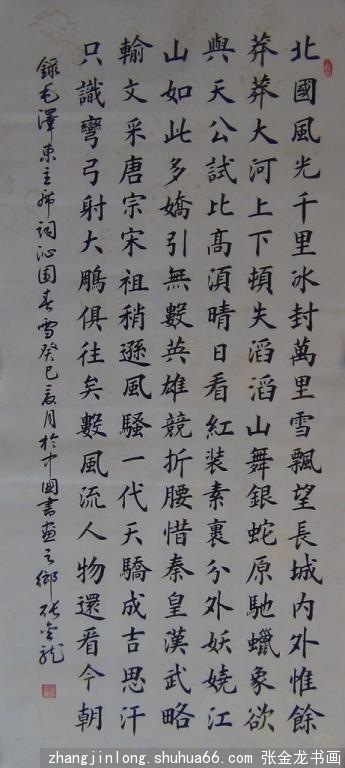 北國風光千里冰封萬里雪飄望長城內外惟餘
莽莽大河上下頓失滔滔山舞銀蛇原馳蠟象欲
與天公試比高須晴日看紅装素裹分外妖嬈江
山如此多嬌引無數英雄競折腰惜秦皇漢武略
輸文采唐宗宋祖稍遜風騷一代天驕成吉思汗
只識彎弓射大鵰俱往矣數風流人物還看今朝
錄毛澤東主席詞沁園春雪癸巳夏月於中國書畫之鄉張金龍
zhangjinlong.shuhua66.com 张金龙书画